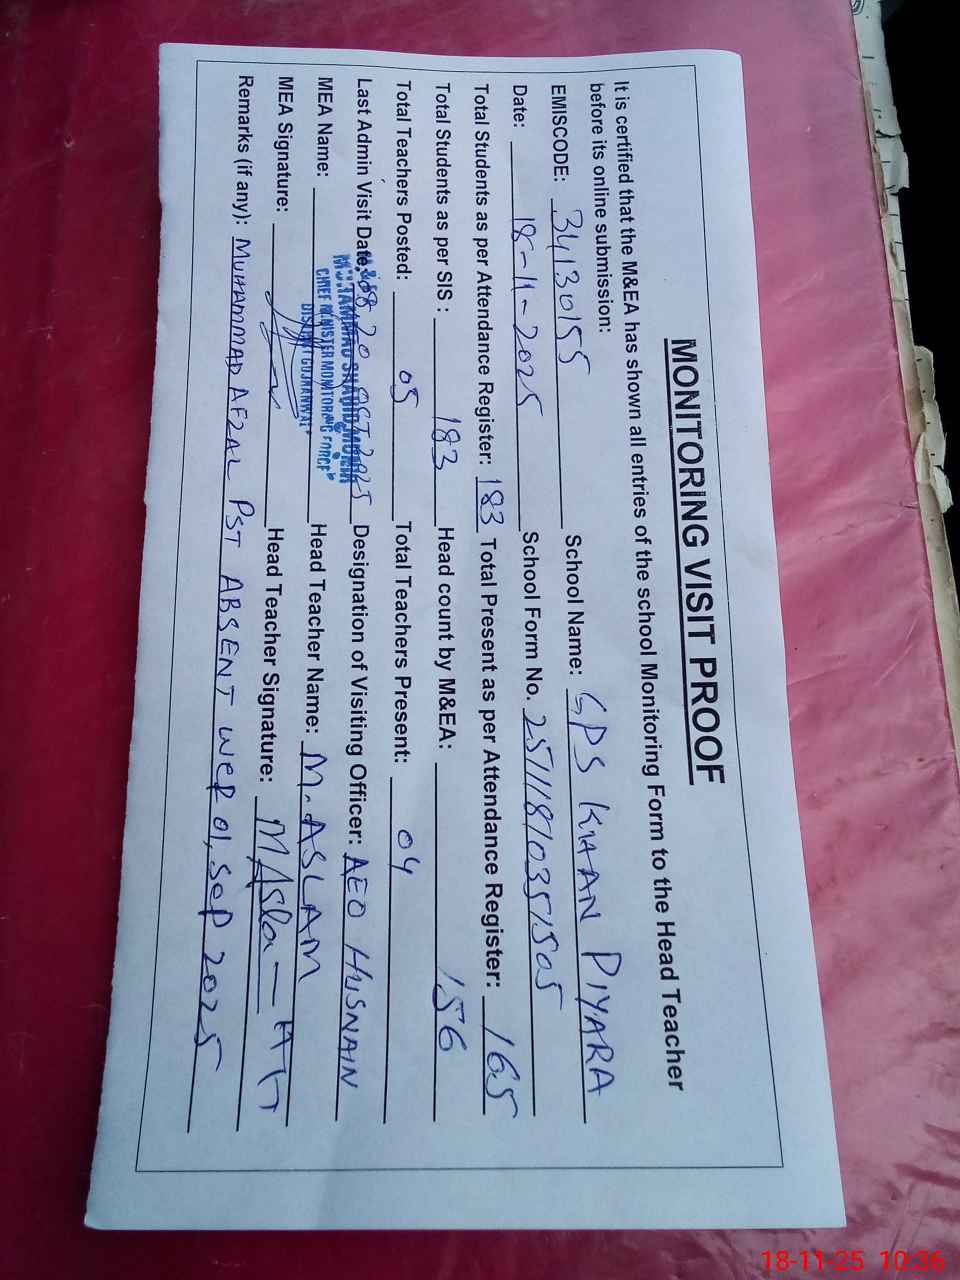 MONITORING VISIT PROOF
It is certified that the M&EA has shown all entries of the school Monitoring Form to the Head Teacher
before its online submission:
EMISCODE: 34130155 School Name: GPS KHAAN PIYARA
Date: 18-11-2025 School Form No. 25111810351505
Total Students as per Attendance Register: 183 Total Present as per Attendance Register: 165
Total Students as per SIS : 183 Head count by M&EA: 156
Total Teachers Posted: 05 Total Teachers Present: 04
Last Admin Visit Date: 2025 Designation of Visiting Officer: AEO HUSNAIN
MEA Name: Head Teacher Name: M. ASLAM
CHIEF MINISTER MONITORING FORCE
DISTRICT GUJRANWALA
MEA Signature: Head Teacher Signature: M Asla HT
Remarks (if any): MUHAMMAD AFZAL PST ABSENT WEF 01, SEP 2025
18-11-25 10:36